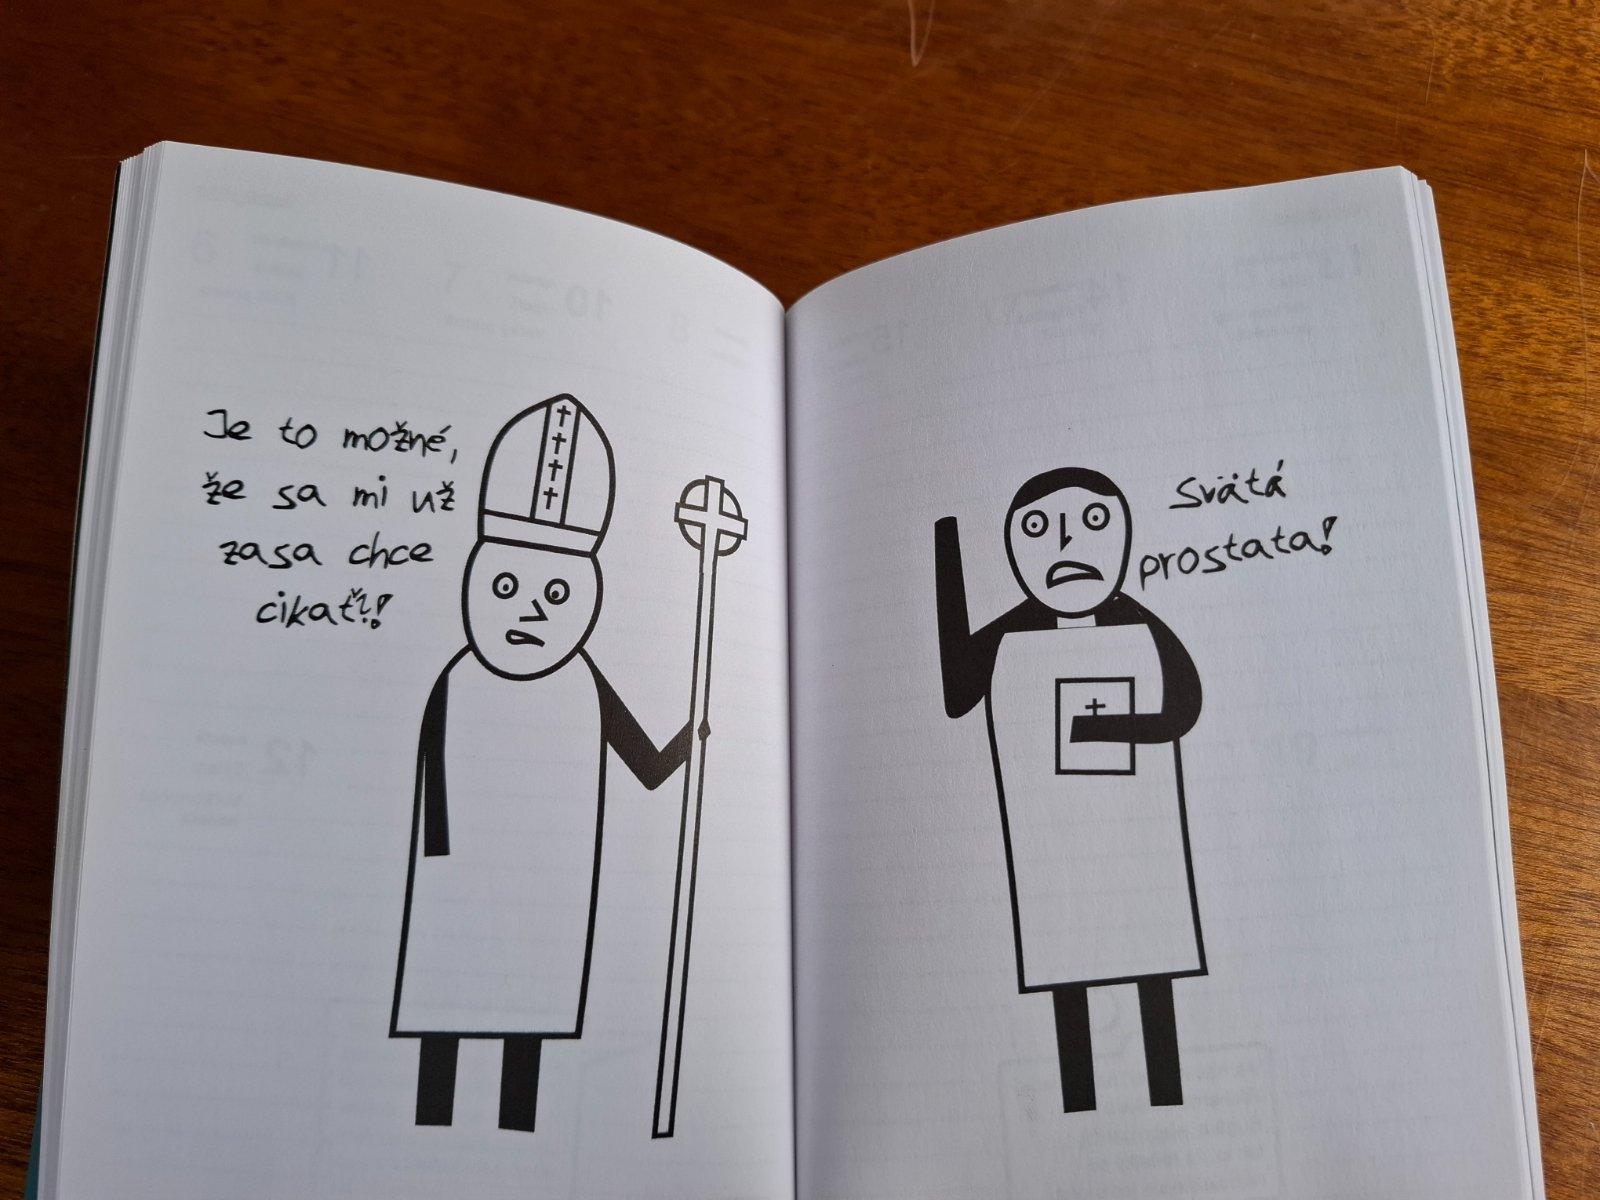 Je to možné,
že sa mi už
zasa chce
cikať?!
Svätá
prostata!